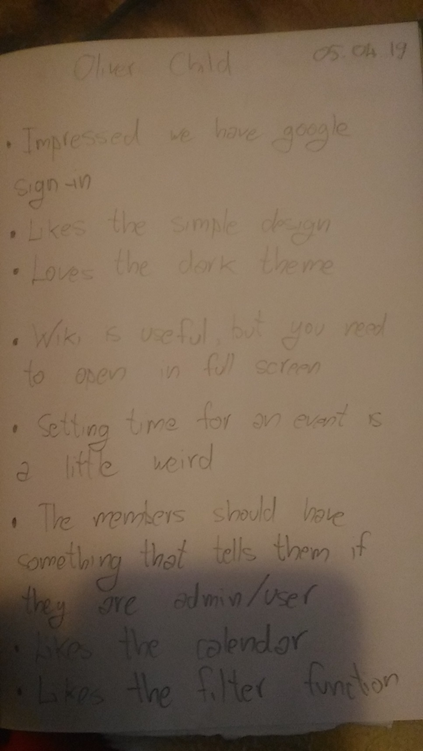 Oliver Child 05.04.19
• Impressed we have google
sign-in
• Likes the simple design
• Loves the dark theme
• Wiki is useful, but you need
to open in full screen
• Setting time for an event is
a little weird
• The members should have
something that tells them if
they are admin/user
• Likes the calendar
• Likes the filter function